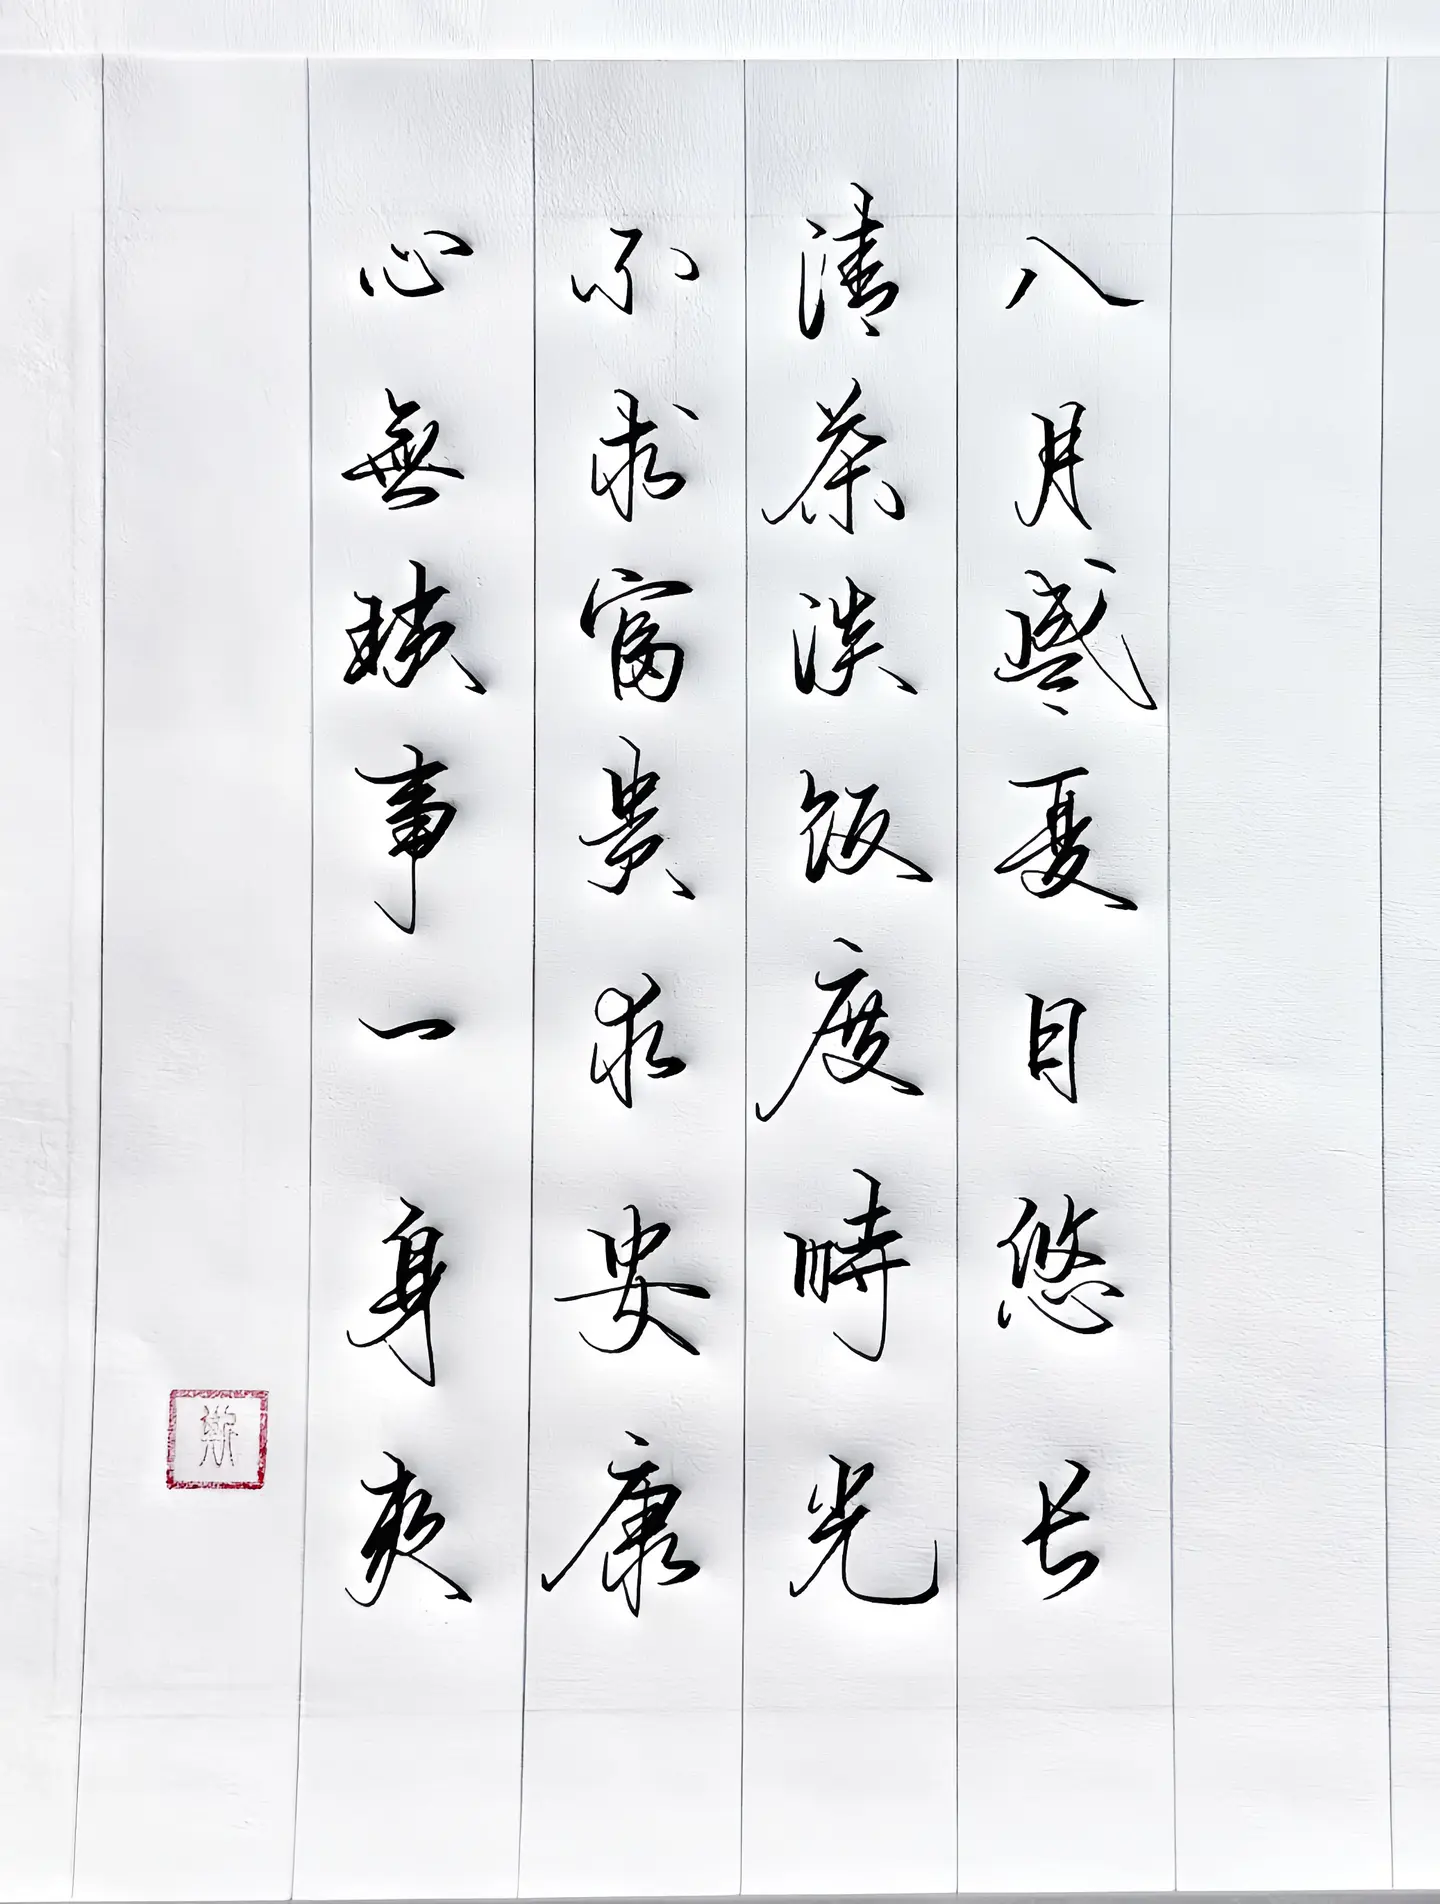 八月盛夏日悠长
清茶淡饭度時光
不求富贵求安康
心無琐事一身爽